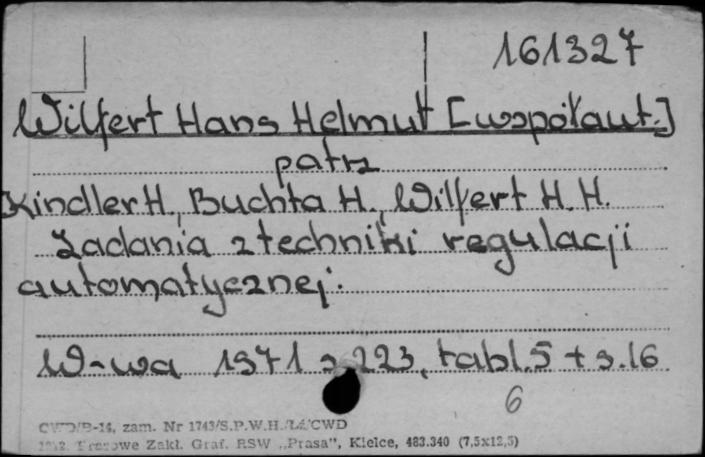 161327
Wilfert Hans Helmut [współaut.]
patrz
Kindler H., Buchta H., Wilfert H. H.
Zadania z techniki regulacji
automatycznej.
W-wa 1971 s. 223, tabl. 5 + s. 16
6
CWD/B-14, zam. Nr 1743/S.P.W.H./Ł/CWD
Prasowe Zakł. Graf. RSW „Prasa”, Kielce, 483.340 (7,5x12,5)